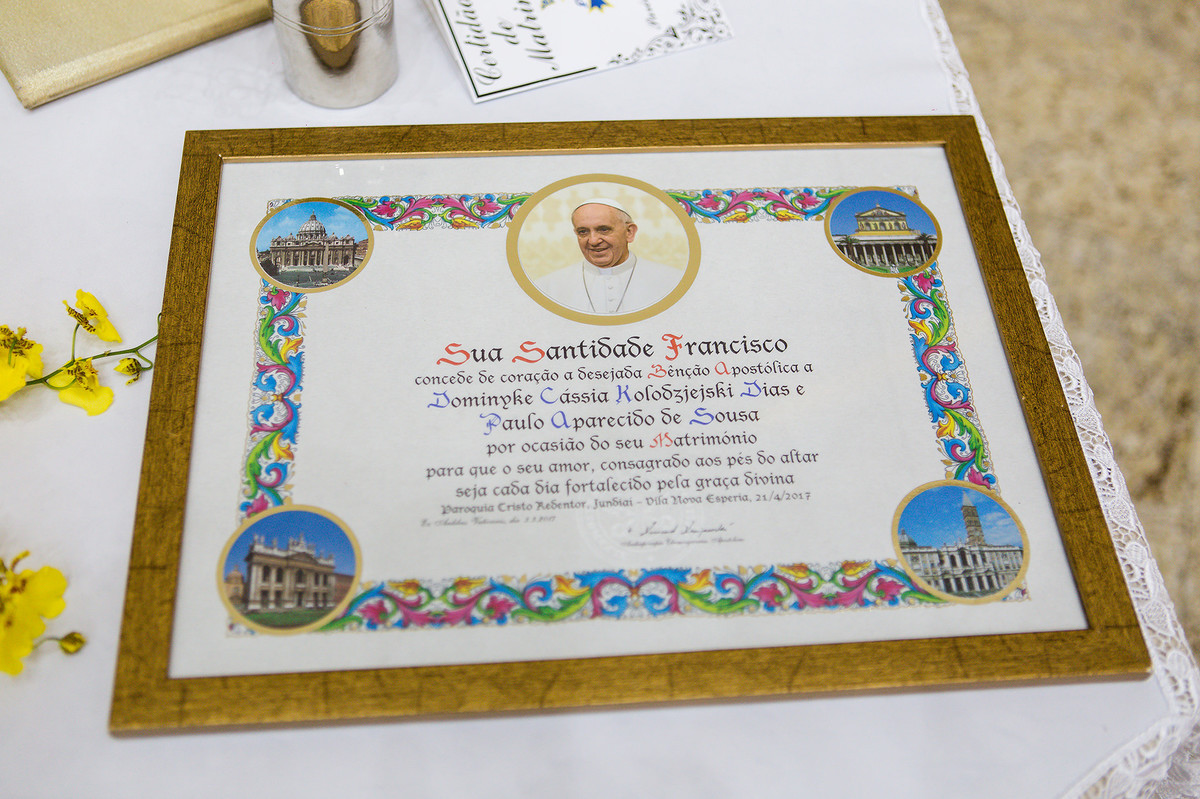 Certidão
de
Matrim
Sua Santidade Francisco
concede de coração a desejada Bênção Apostólica a
Dominyke Cássia Kolodzjejski Dias e
Paulo Aparecido de Sousa
por ocasião do seu Matrimónio
para que o seu amor, consagrado aos pés do altar
seja cada dia fortalecido pela graça divina
Paroquia Cristo Redentor, Jundiai - Vila Nova Esperia, 21/4/2017